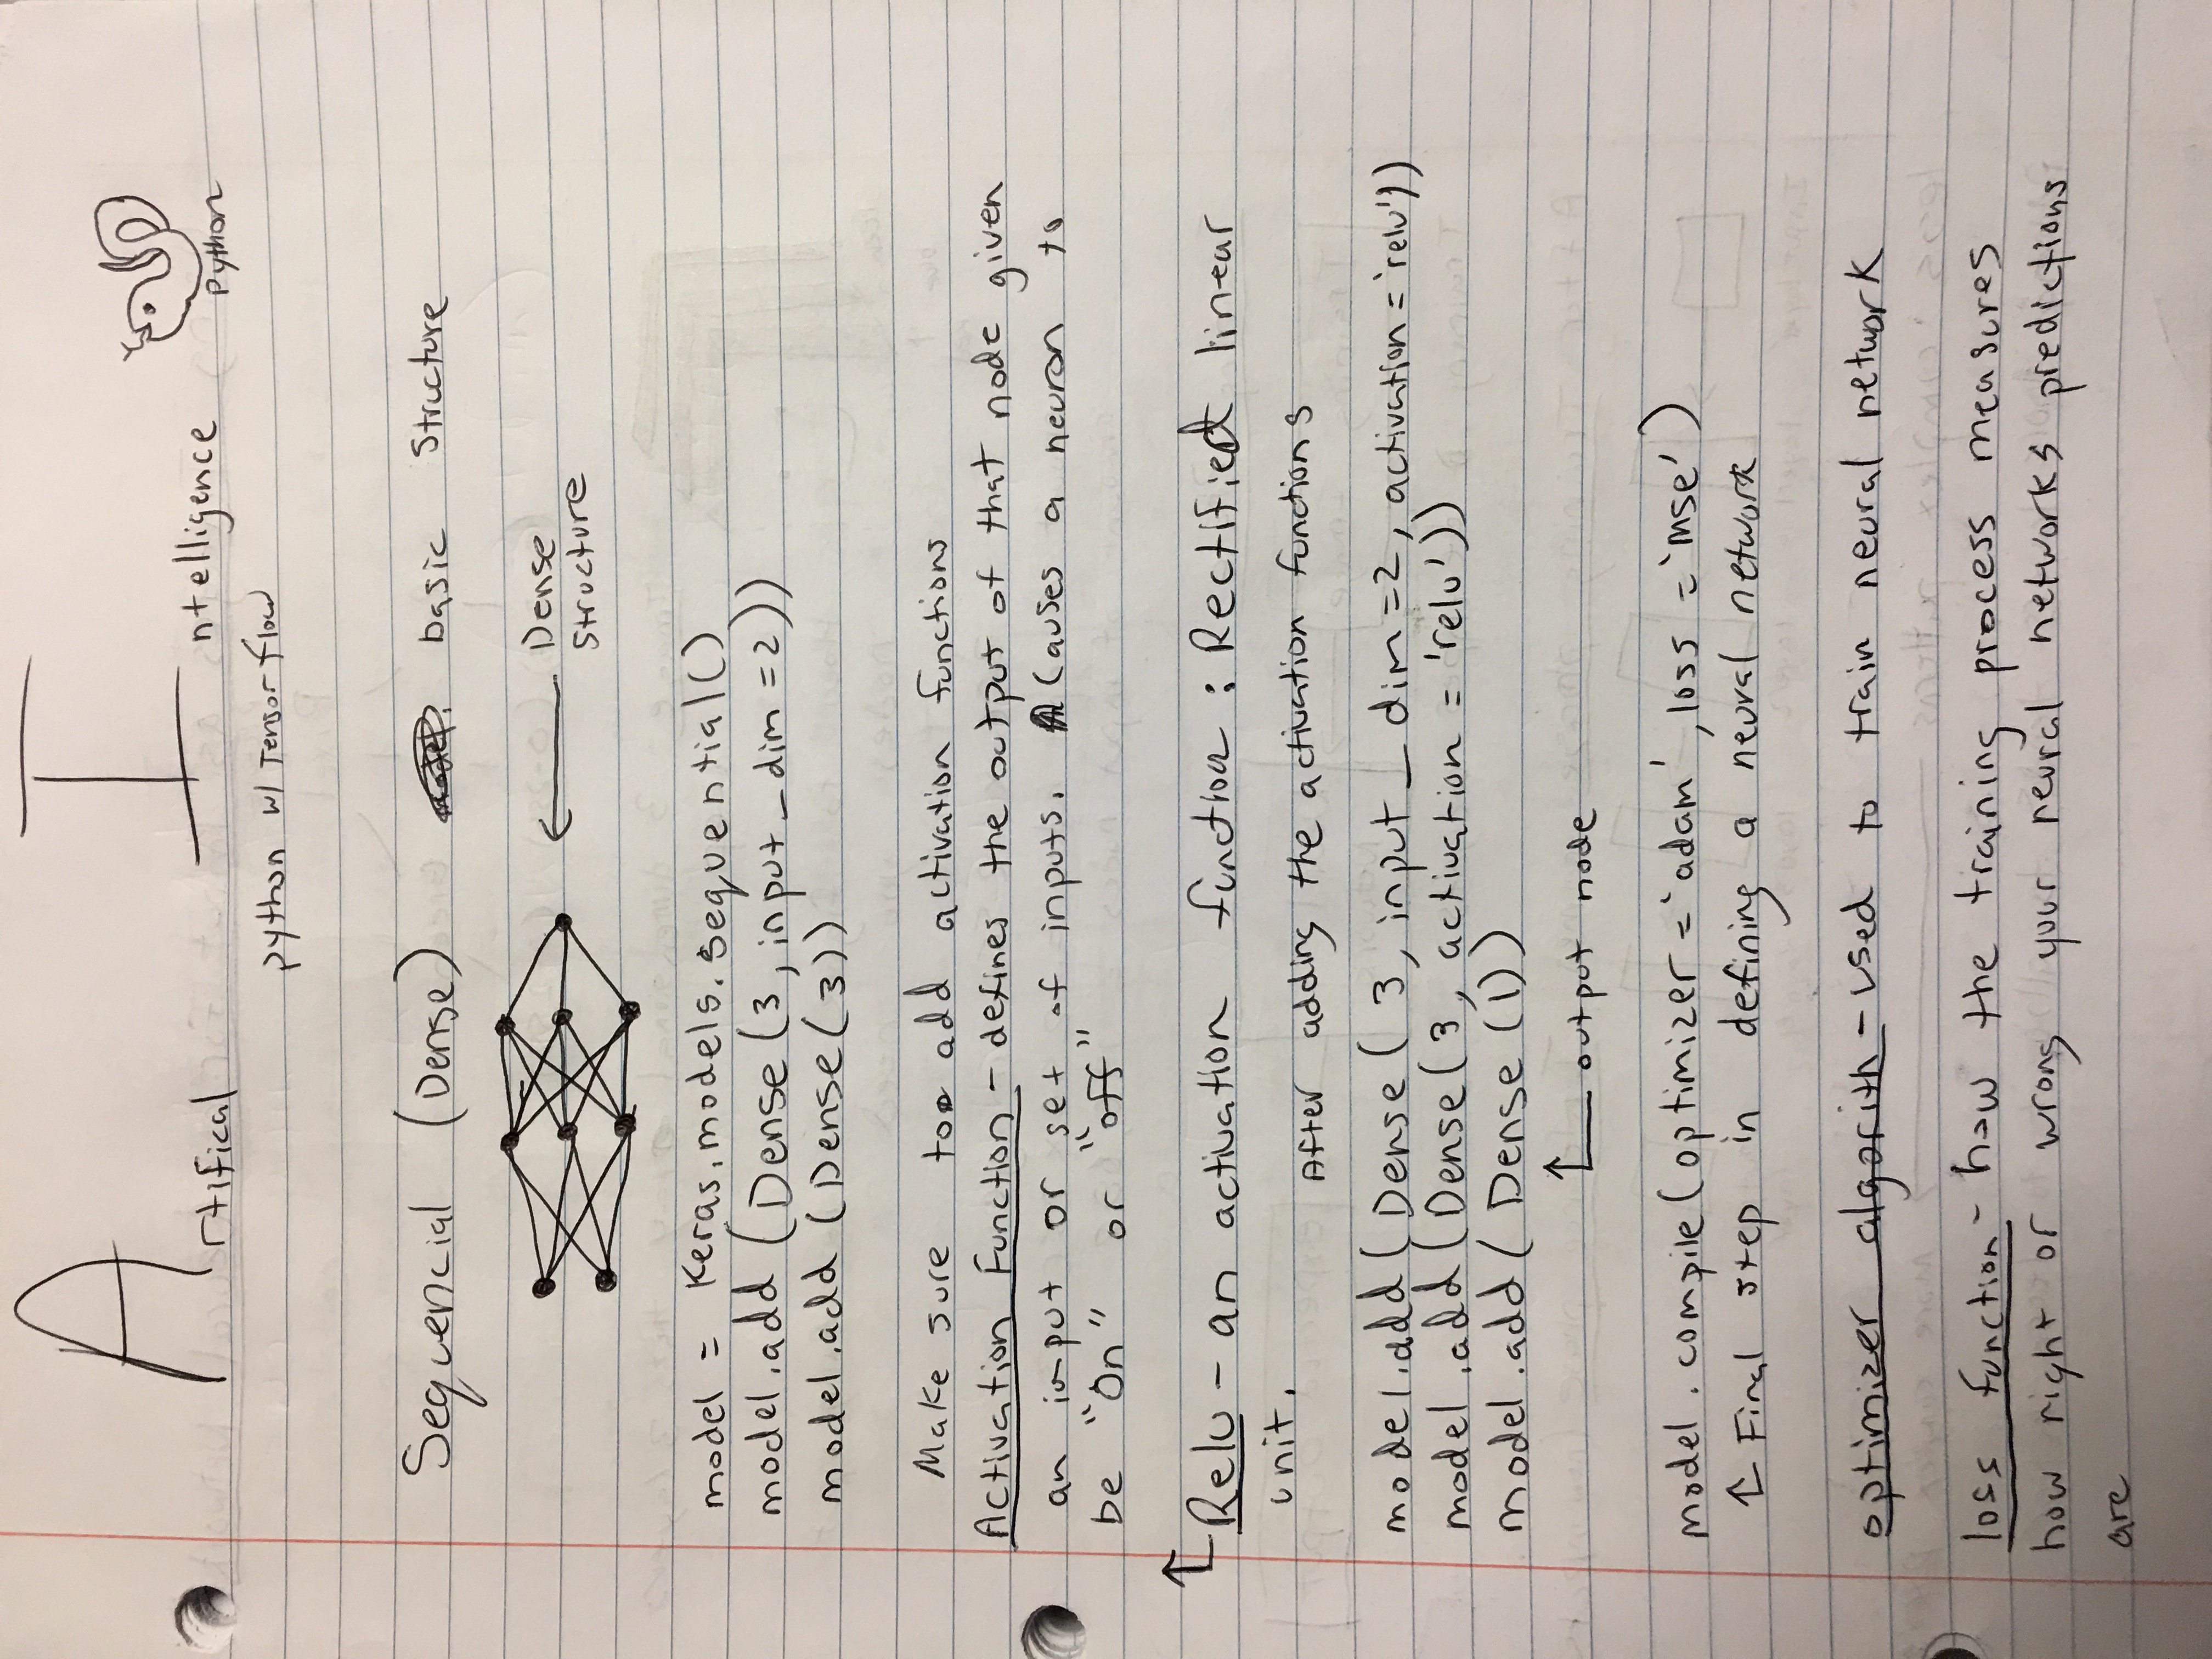 Artifical Intelligence
Python
python w/ Tensorflow
Sequencial (Dense) basic Structure
Dense
Structure
model = Keras.models.sequential()
model.add (Dense (3, input_dim =2))
model.add (Dense(3))
Make sure too add activation functions
Activation Function - defines the output of that node given
an input or set of inputs. Causes a neuron to
be "On" or "off"
Relu - an activation function : Rectified linear
unit.
After adding the activation functions
model.add (Dense ( 3, input_dim =2, activation = 'relu'))
model.add (Dense (3, activation = 'relu'))
model.add ( Dense (1))
output node
model.compile(optimizer = 'adam', loss = 'mse')
Final step in defining a neural network
optimizer algorith - used to train neural network
loss function - how the training process measures
how right or wrong your neural networks predictions
are